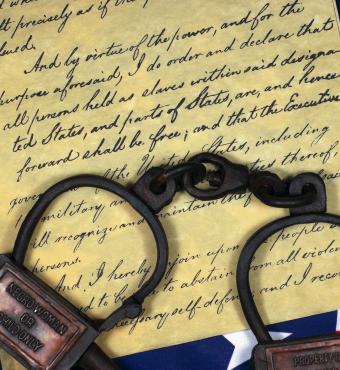 t precisely as if
used.
And by virtue of the power, and for the
purpose aforesaid, I do order and declare that
all persons held as slaves within said designa
ted States, and parts of States, are, and hence
forward shall be free; and that the Executive
States, including
ties thereof,
military, and maintain the
ill recognize and
persons.
And, I hereby enjoin upon people
to abstain from all violen
necessary self-defence; and I reco
NEGRO WOMAN
OR
PROPERTY OF